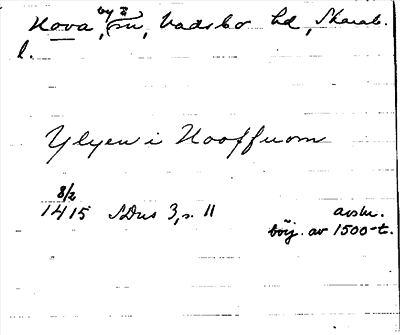 by
Hova, sn, Vadsbo hd, Skarab.
l.
Ylyen i Hooffuom
8/2
1415 SDns 3, s. 11 avskr.
börj. av 1500-t.